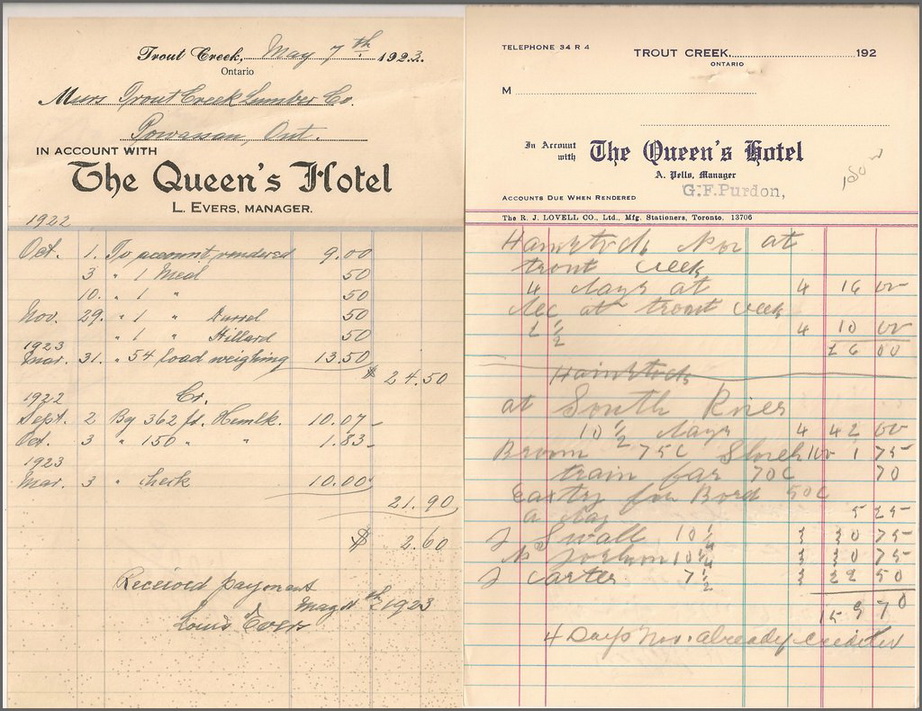 Trout Creek, May 7th 1923.
Ontario
Messrs Trout Creek Lumber Co.
Powassan, Ont.
IN ACCOUNT WITH
The Queen's Hotel
L. EVERS, MANAGER.
1922
Oct. 1. To account rendered 9.00
3 " 1 Meal 50
10. " 1 " 50
Nov. 29. " 1 " Russel 50
" 1 " Hillard 50
1923
Mar. 31. " 54 load weighing 13.50
$ 24.50
1922 Cr.
Sept. 2 By 362 ft. Hemlk. 10.07
Oct. 3 " 150 " " 1.83
1923
Mar. 3 " check 10.00
21.90
$ 2.60
Received payment
May 11th 1923
Louis Evers
TELEPHONE 34 R 4
TROUT CREEK, 192
ONTARIO
M
In Account with The Queen's Hotel
A. Pells, Manager
G.F.Purdon,
ACCOUNTS DUE WHEN RENDERED
The R. J. LOVELL CO., Ltd., Mfg. Stationers, Toronto, 13706
Nov at
trout creek
4 days at 4 16 00
Dec at trout creek
2 1/2 4 10 00
26 00
at South River
10 1/2 days 4 42 00
Broom 75c 1 75
train far 70c 70
for Bord 50c
a day 5 25
J Swall 10 1/4 3 30 75
10 1/4 3 30 75
J Carter 7 1/2 3 22 50
159 70
4 Days Nov. already credited